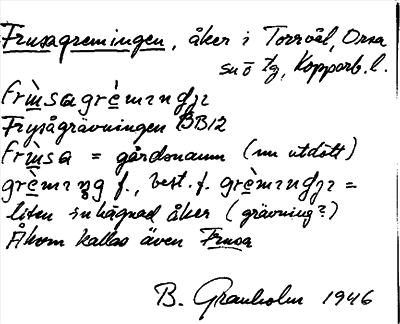 Frusagremingen, åker i Torrvål, Orsa
sn o tg, Kopparb. l.
frìnsagrèmıngjı
Frysågrävningen BB12
frìnsa = gårdsnamn (nu utdött)
grèmıng f., best. f. grèmıngjı =
liten inhägnad åker (grävning?)
Åkern kallas även Frusa
B. Granholm 1946